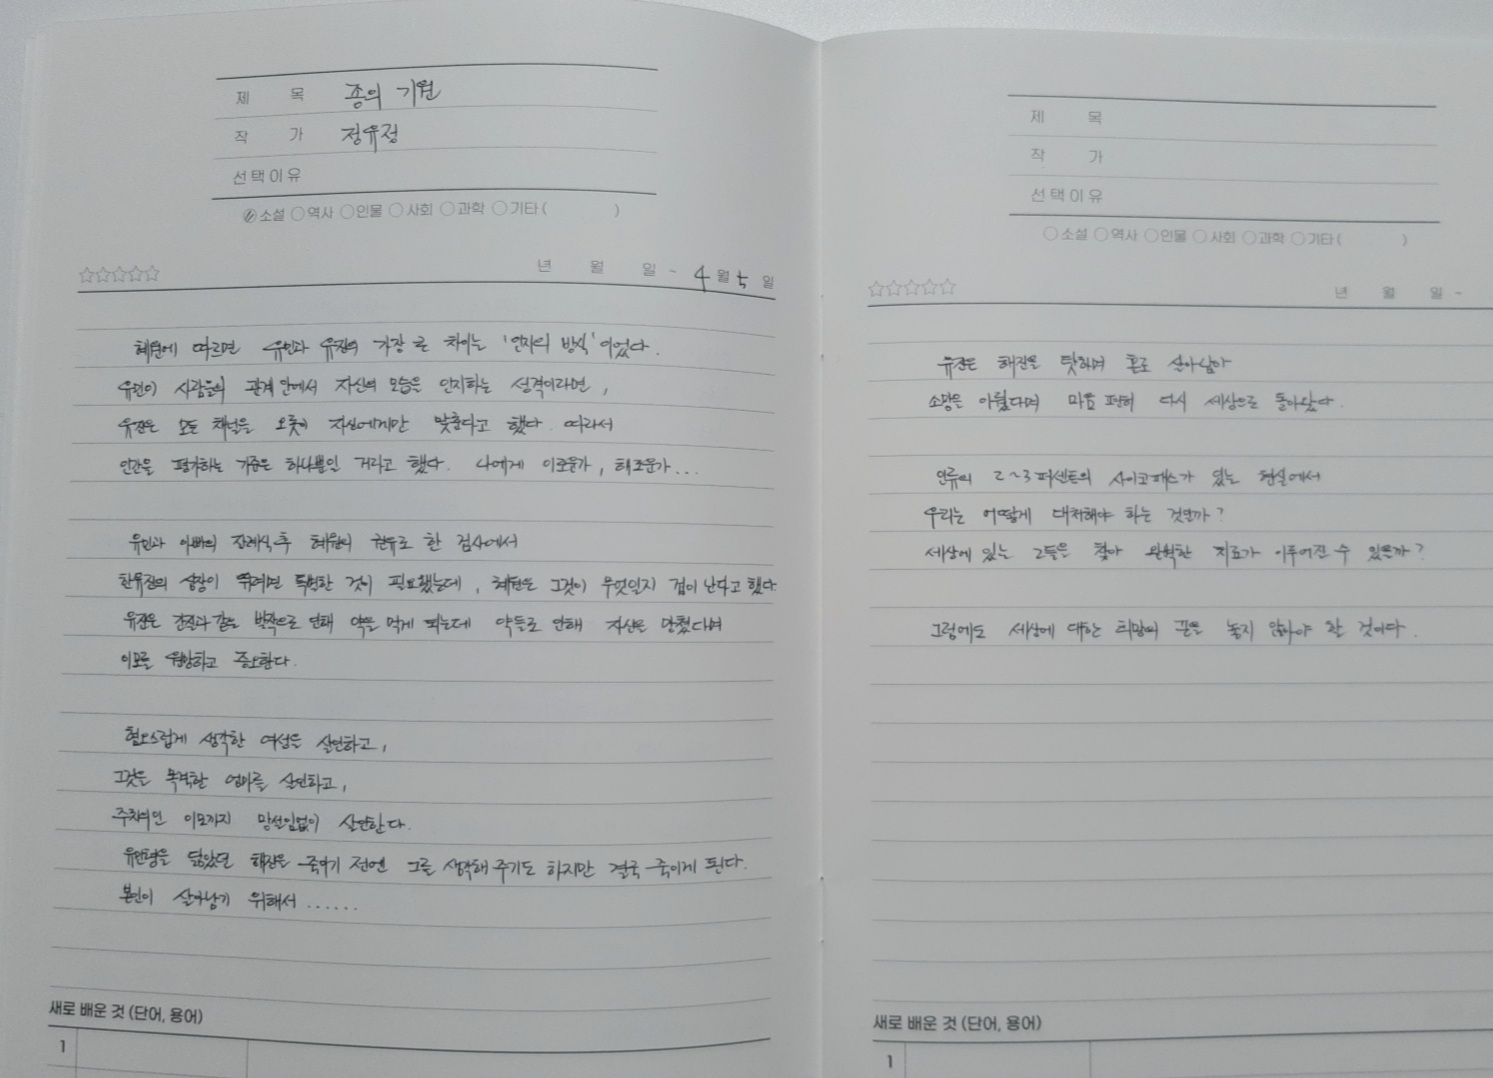 제 목 종의 기원
작 가 정유정
선택이유
소설 역사 인물 사회 과학 기타 ( )
년 월 일 ~ 4월 5일
혜원에 따르면 유민과 유진의 가장 큰 차이는 '인지의 방식'이었다.
유민이 사람들의 관계 안에서 자신의 모습을 인지하는 성격이라면,
유진은 모든 채널을 오롯이 자신에게만 맞춘다고 했다. 따라서
인간을 평가하는 기준은 하나뿐인 거라고 했다. 나에게 이로운가, 해로운가...
유민과 아빠의 장례식 후 혜원의 권유로 한 검사에서
한유진의 심장이 뛰려면 특별한 것이 필요했는데, 혜원은 그것이 무엇일지 겁이 난다고 했다.
유진은 간질과 같은 발작으로 인해 약을 먹게 되는데 약들로 인해 자신을 망쳤다며
이모를 원망하고 증오한다.
혐오스럽게 생각한 여성을 살인하고,
그것을 목격한 엄마를 살인하고,
주치의인 이모까지 망설임없이 살인한다.
유민형을 닮았던 해진을 죽이기 전엔 그를 생각해 주기도 하지만 결국 죽이게 된다.
본인이 살아남기 위해서......
새로 배운 것 (단어, 용어)
1
제 목
작 가
선택이유
소설 역사 인물 사회 과학 기타 ( )
년 월 일 ~
유진은 해진을 탓하며 홀로 살아남아
소망을 이뤘다며 마음 편히 다시 세상으로 돌아왔다.
인류의 2~3퍼센트의 사이코패스가 있는 현실에서
우리는 어떻게 대처해야 하는 것일까?
세상에 있는 그들을 찾아 완벽한 치료가 이루어질 수 있을까?
그럼에도 세상에 대한 희망의 끈을 놓지 않아야 할 것이다.
새로 배운 것 (단어, 용어)
1